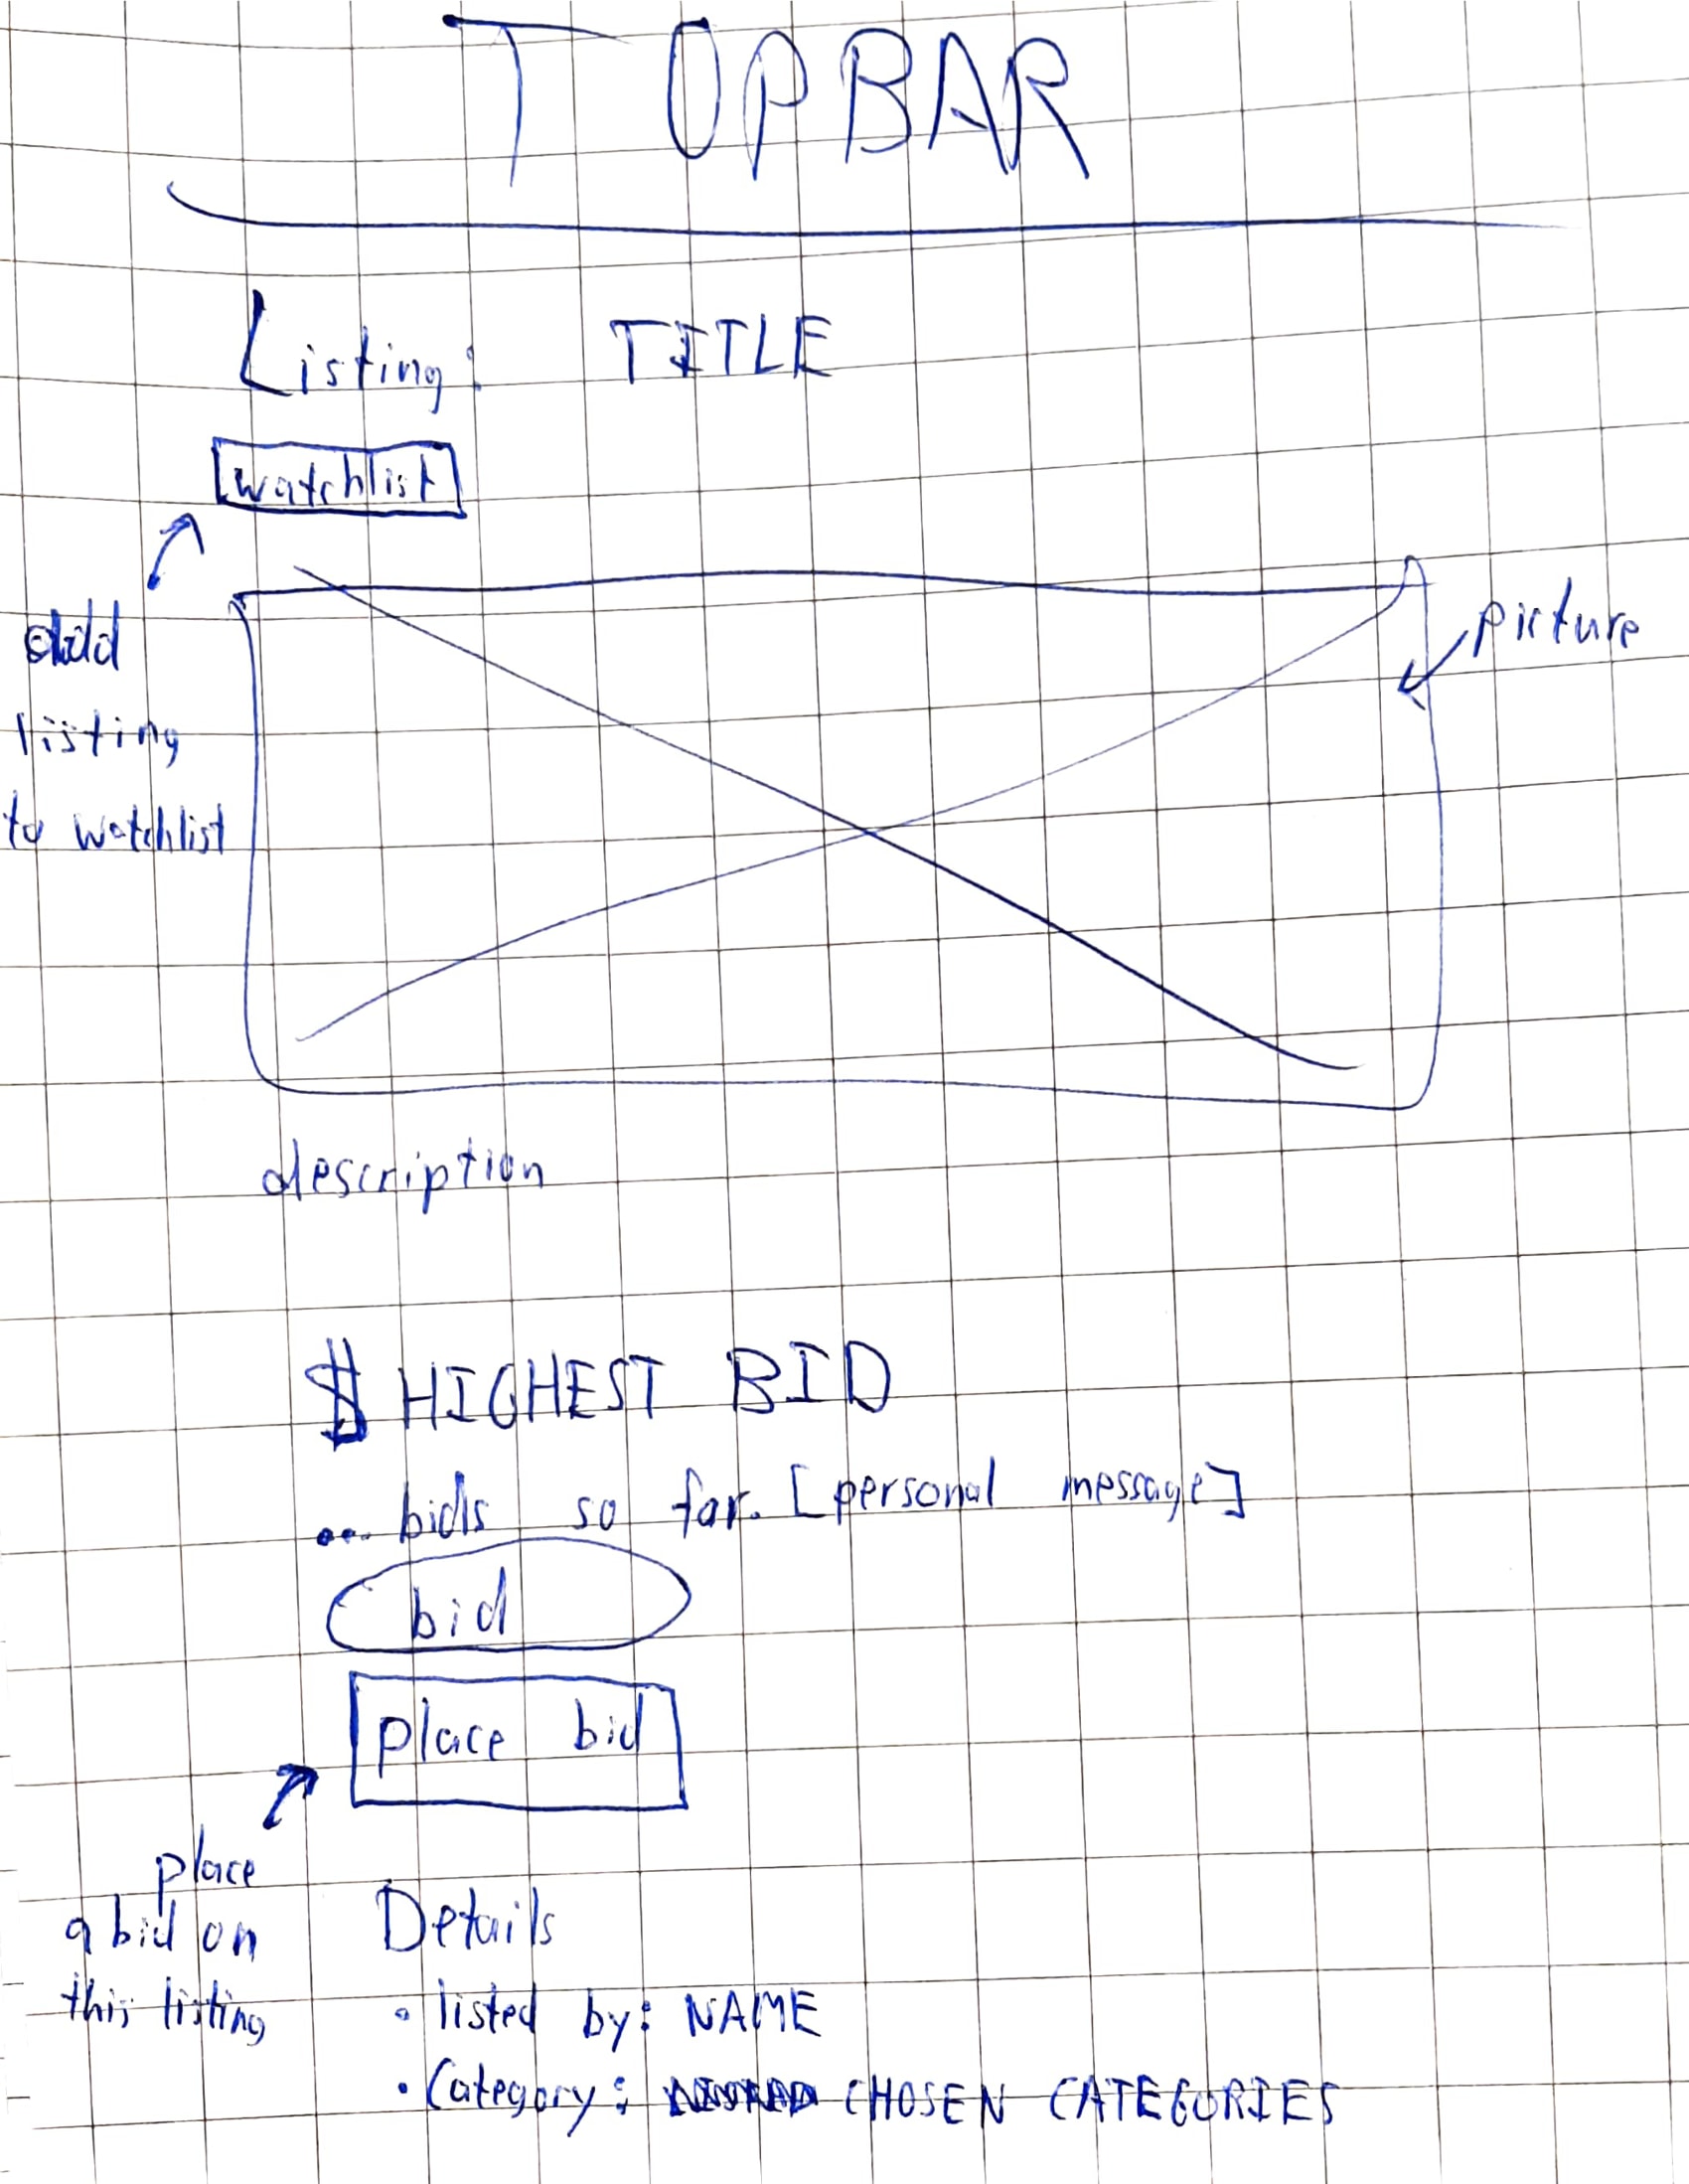 TOPBAR
Listing: TITLE
watchlist
add
listing
to watchlist
picture
description
$ HIGHEST BID
... bids so far. [personal message]
bid
place bid
place
a bid on
this listing
Details
• listed by: NAME
• Category: CHOSEN CATEGORIES